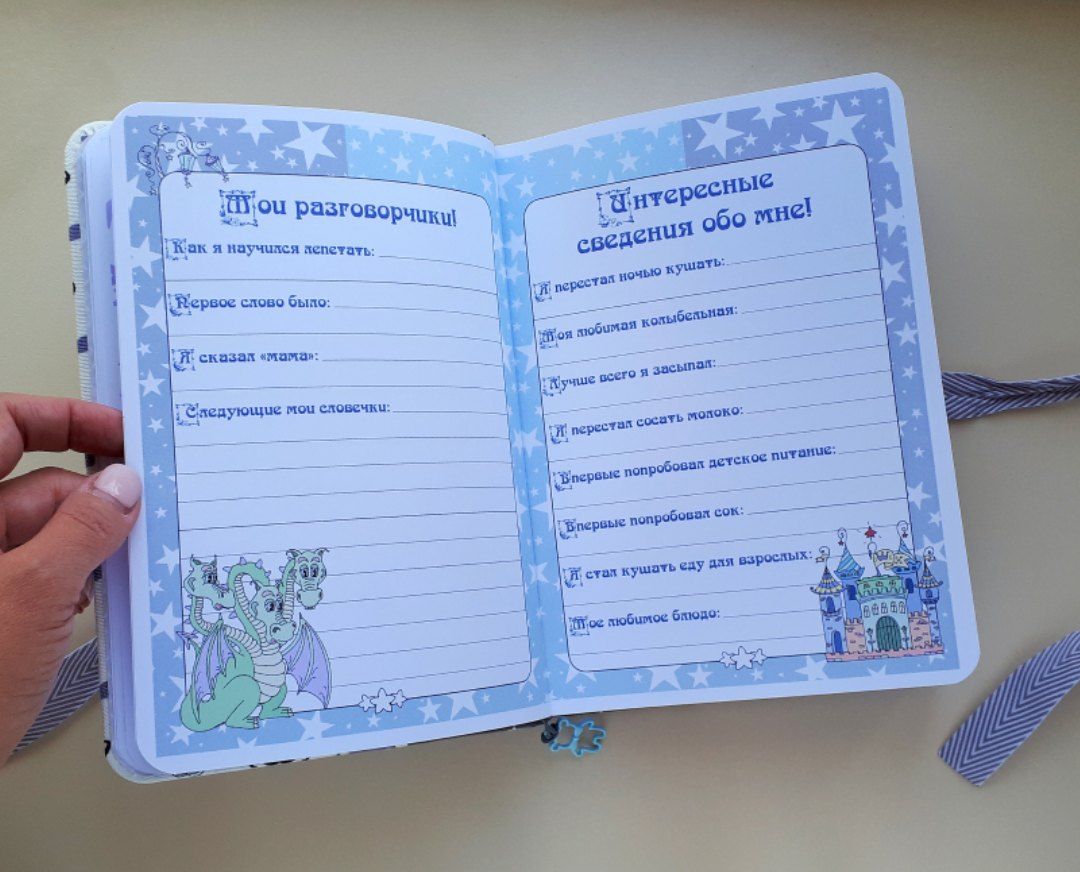 Мои разговорчики!
Как я научился лепетать:
Первое слово было:
Я сказал «мама»:
Следующие мои словечки:
Интересные
сведения обо мне!
Я перестал ночью кушать:
Моя любимая колыбельная:
Лучше всего я засыпал:
Я перестал сосать молоко:
Впервые попробовал детское питание:
Впервые попробовал сок:
Я стал кушать еду для взрослых:
Мое любимое блюдо: